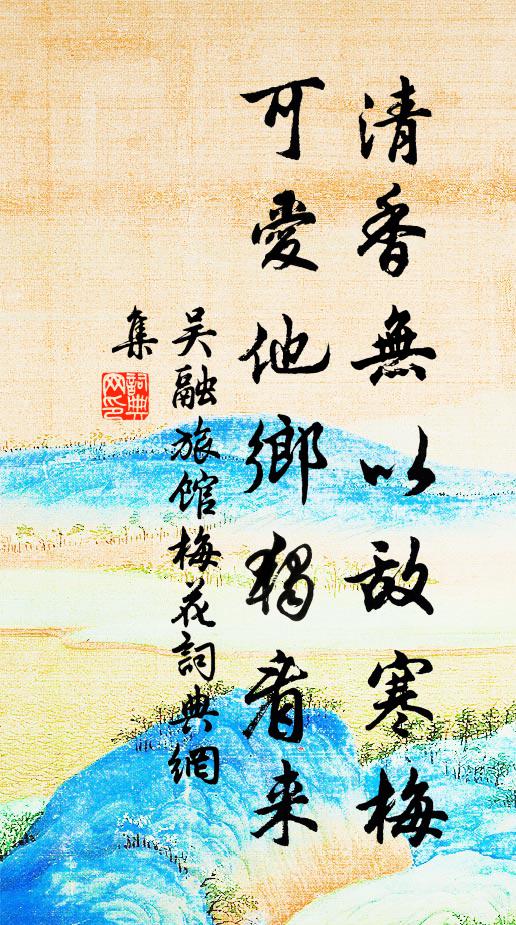 清香無以敵寒梅
可愛他鄉獨看来
吴融旅馆梅花詞典網
集
詞典網印